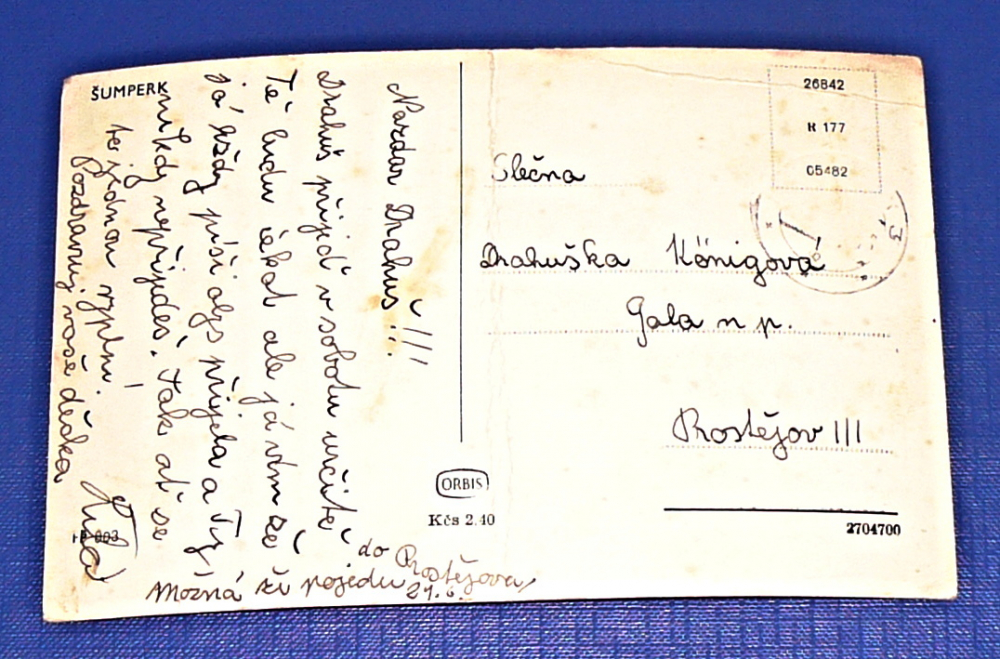 ŠUMPERK
Nazdar Drahuš!!!
Drahuš přijď v sobotu určitě
Tě budu čekat ale já vím že
já vždy píši abys přijela a Ty
nikdy nepřijedeš. Tak ať se
to jednou vyplní!
Pozdravuj vaše děcka
Možná že pojedu do Prostějova
21.6.
ORBIS
Kčs 2.40
26842
R 177
05482
3
Slečna
Drahuška Königová
Gala n p.
Prostějov III
2704700